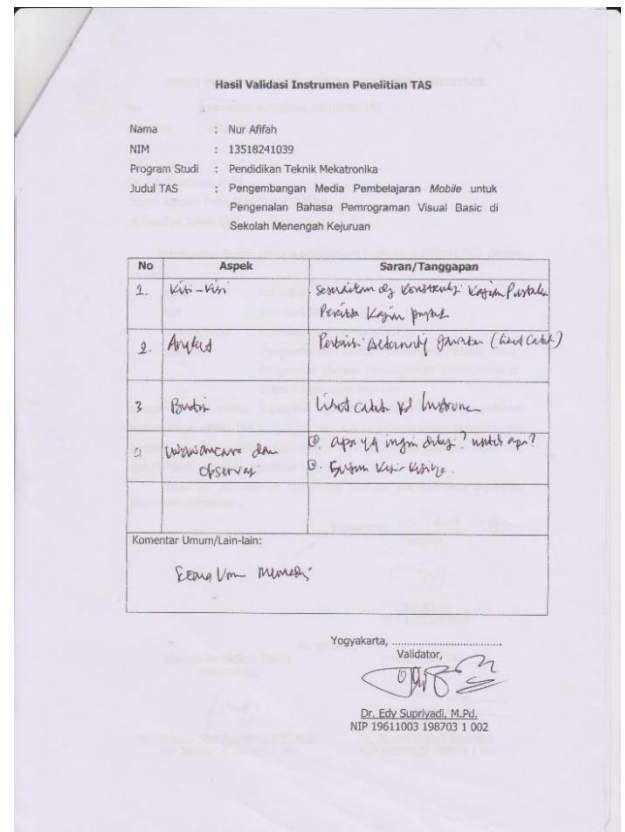 Hasil Validasi Instrumen Penelitian TAS
Nama : Nur Afifah
NIM : 13518241039
Program Studi : Pendidikan Teknik Mekatronika
Judul TAS : Pengembangan Media Pembelajaran Mobile untuk
Pengenalan Bahasa Pemrograman Visual Basic di
Sekolah Menengah Kejuruan
No Aspek Saran/Tanggapan
1. Kisi-kisi Sesuaikan dg Konstruksi Kajian Pustaka
Kajian
2. Angket Perbaiki Alternatif
3 Butir Lihat pd Instrumen
Wawancara dan observasi apa yg ingin ? untuk apa?
Susun Kisi-kisinya.
Komentar Umum/Lain-lain:
Yogyakarta, ..................................
Validator,
Dr. Edy Supriyadi, M.Pd.
NIP 19611003 198703 1 002